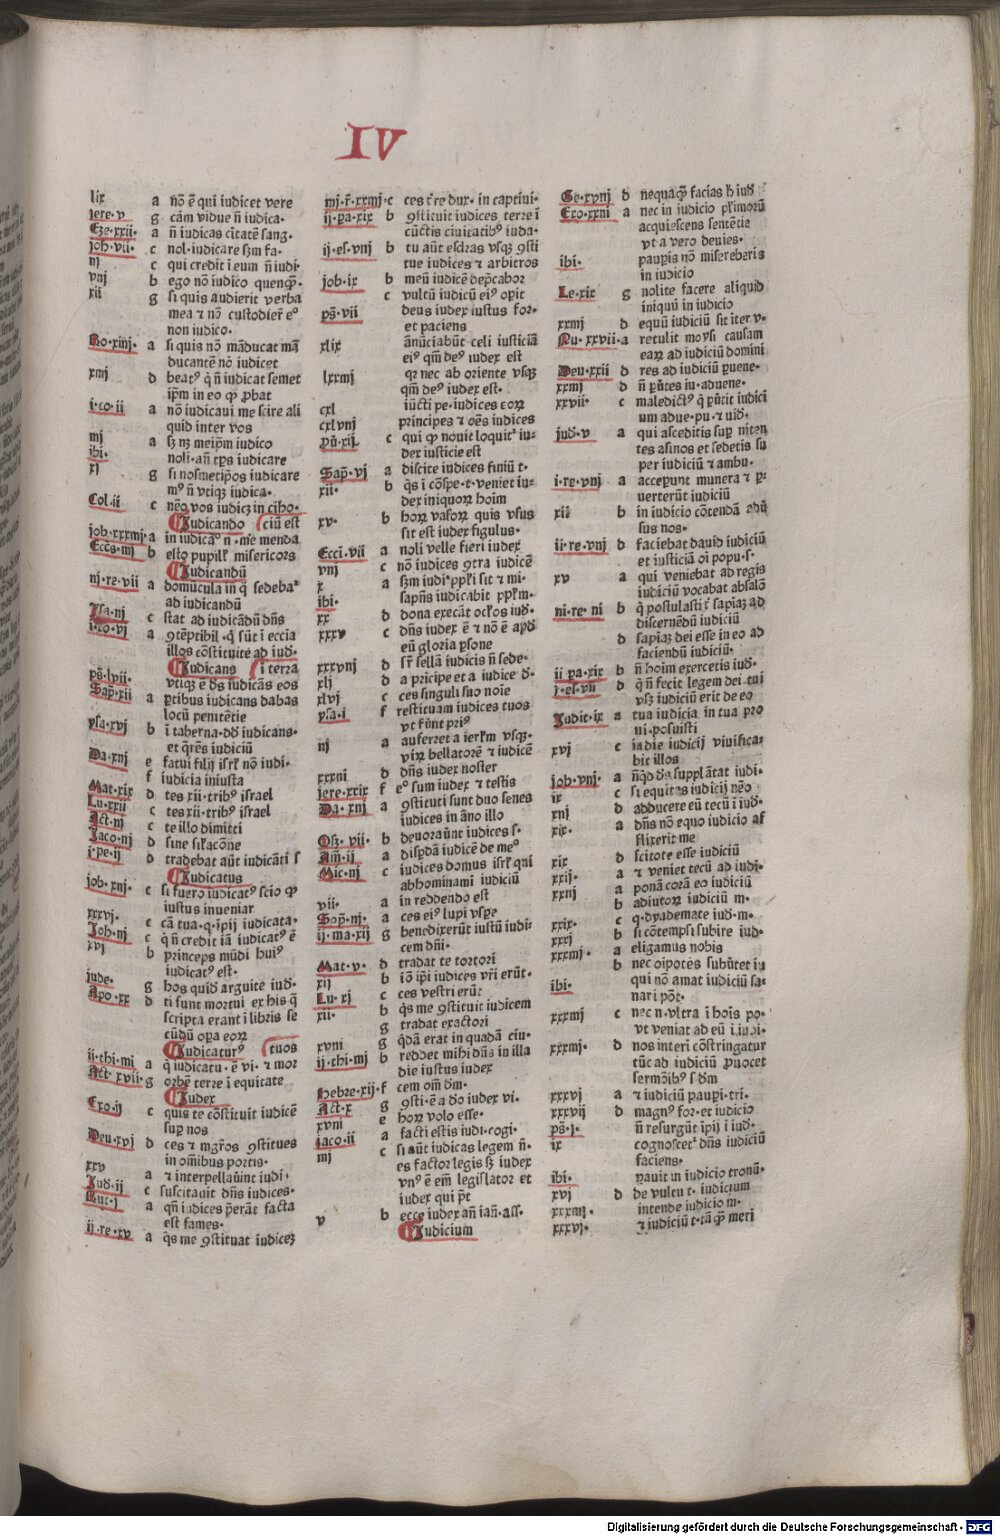 IV
lix a nō ē qui iudicet vere
jere·v g cām vidue n̄ iudica·
Eze·xxii· a n̄ iudicas citatē sang·
joh·vii· c nol·iudicare sꝫm fa·
nj c qui credit i eum n̄ iudi·
vnj b ego nō iudico quenqꝫ·
xii g si quis audierit verba
mea ⁊ nō custodier̄ eº
non iudico·
Ro·xinj· a si quis nō māducat mā
ducantē nō iudicet
xmj d beatꝰ q̇ n̄ iudicat semet
ip̄m in eo qꝫ ꝓbat
i·co·ii a nō iudicaui me scire ali
quid inter vos
mj a sꝫ nꝫ meip̄m iudico
ibi· noli·an̄ tp̄s iudicare
xj g si nosmetip̄os iudicare
mꝰ n̄ vtiqꝫ iudica·
Col·ii c nēo vos iudicꝫ in ciho·
Judicando ciū est
job·xxxmj· a in iudicāº n̄·me menda
Eccs·mj b esto pupill' misericors
Judicandū
nj·re·vii a domūcula in q̇ sedebaꝰ
ad iudicandū
Ysa·nj c stat ad iudicādū dn̄s
i·co·vj a ꝯtēptibil·q̇ sūt i eccia
illos cōstituite ad iud·
Judicans i terra
ps̄·lvii· vtiqꝫ ē ds iudicās eos
Sap̄·xii a ꝑtibus iudicans dabas
locū penitētie
ysa·xvj b i taberna·dd iudicans·
et qrēs iudiciū
Da·xnj e fatui filij isrl' nō iudi·
f iudicia iniusta
Mat·xix d tes xii·tribꝰ israel
Lu·xxii c tes xii·tribꝰ israel
Act·nj c te illo dimitti
Jaco·nj d sine silacōne
i·pe·ij d tradebat aūt iudicāti s
Judicatus
job·xnj· c si fuero iudicatꝰ scio qꝫ
iustus inueniar
xxxvj· c cā tua·q·ip̄ij iudicata·
Joh·nj c q̇ n̄ credit iā iudicatꝰ ē
xvj b princeps mūdi huiꝰ
iudicatꝰ est·
jude· g hos quid arguite iud·
Apo·xx d ti sunt mortui ex his q̄
scripta erant i libris se
cūdū opa eoꝝ
Judicaturꝰ tuos
ii·thi·mi a q̇ iudicatu·ē vi·⁊ mor
Act·xvii· g orbē terre i equitate
Judex
Exo·ij c quis te cōstituit iudicē
sup nos
Deu·xvj d ces ⁊ mgr̄os ꝯstitues
in om̄ibus portis·
xxv a ⁊ interpellaūint iudi·
Jud·ij c suscitauit dn̄s iudices·
Rut·j a qn̄ iudices p̄erāt facta
est fames·
ii·re·xv a q̇s me ꝯstituat iudiceꝫ
mj·r̄·xxmj· c ces tr̄re dux·in captiui·
ij·pa·xix b ꝯstituit iudices terre i
cūctis ciuitatibꝰ iuda·
ij·es·vnj b tu aūt esdras vsqꝫ ꝯsti
tue iudices ⁊ arbitros
job·ix b meū iudicē dep̄cabor
c vultū iudicū eiꝰ opit
ps̄·vii deus iudex iustus for·
et paciens
xlix ānūciabūt celi iusticiā
eiꝰ qm̄ deꝰ iudex est
lxxmj qꝛ nec ab oriente vsqꝫ
qm̄ deꝰ iudex est·
cxl iūcti pe·iudices eoꝝ
cxlvnj principes ⁊ oēs iudices
pū·xij c qui qꝫ nouit loquit' iu·
dex iusticie est
Sap̄·vj a discite iudices finiū t·
xii· b q̇s i cōspe·t·veniet iu·
dex iniquoꝝ hoim
xv· b hoꝝ vasoꝝ quis vsus
sit est iudex figulus·
Ecci·vii a noli velle fieri iudex
vnj c nō iudices ꝯtra iudicē
x a sꝫm iudi·ppl'i sit ⁊ mi·
ibi· sapn̄s iudicabit ppl'm·
xx d dona execāt oclos iud·
xxxv c dn̄s iudex ē ⁊ nō ē apd
eū gloria psone
xxxvnj d sr̄ sellā iudicis n̄ sede·
xlj d a pricipe et a iudice d·
xlvj c ces singuli suo noie
ysa·i f restituam iudices tuos
vt fūnt priꝰ
nj a auferret a ierl'm vsqꝫ·
virꝫ bellatorē ⁊ iudicē
xxxni d dn̄s iudex noster
jere·xxix f eº sum iudex ⁊ testis
Da·xnj a ꝯstituti sunt duo senes
iudices in āno illo
Osꝫ·vii· b deuoraūnt iudices s·
Am̄·ij a dispdā iudicē de meº
Mic·nj c iudices domus isrl' qui
abhominami iudiciū
vii· a in reddendo est
Sop̄·nj· a ces eiꝰ lupi vspe
ij·ma·xij g benedixerūt iustū iudi·
cem dn̄i·
Mat·v· d tradat te tortori
xij b iō ip̄i iudices vr̄i erūt·
Lu·xj c ces vestri erūt
xii· b q̇s me ꝯstituit iudicem
g tradat exactori
xvni g q̇dā erat in quadā ciu·
ij·thi·mj b reddet mihi dn̄s in illa
die iustus iudex
Hebre·xij· f cem om̄ dm̄·
Act·x g ꝯsti·ē a do iudex vi·
xvni e hoꝝ volo esse·
jaco·ii a facti estis iudi·cogi·
mj c si aūt iudicas legem n̄·
es factor legis sꝫ iudex
vnꝰ ē em̄ legislator et
iudex qui pt̄
v b ecce iudex an̄ ian̄·ass·
Judicium
Ge·xvnj d nequaqꝫ facias h iud
Exo·xxni a nec in iudicio pl'imorū
acquiescens sentētie
vt a vero deuies·
ibi· paupis nō misereberis
in iudicio
Le·xix g nolite facere aliquid
iniquū in iudicio
xxmj d equū iudiciū sit iter v·
Nu·xxvii· a retulit moysi causam
eaꝝ ad iudiciū domini
Deu·xxii d res ad iudiciū ꝓuene·
xxmj d n̄ pūtes iu·aduene·
xxvii· c maledictꝰ q̇ pūtit iudici
um adue·pu·⁊ uid·
jud·v a qui asceditis sup niten
tes asinos et sedetis su
per iudiciū ⁊ ambu·
i·re·vnj a accepunt munera ⁊ ꝑ·
uerterūt iudiciū
xii b in iudicio cōtendā adū
sus nos·
ii·re·vnj d faciebat dauid iudiciū
et iusticiā oi popu·s·
xv a qui veniebat ad regis
iudiciū vocabat absalō
ni·re·ni b q̇ postulasti t' sapiaꝫ ad
discernēdū iudiciū
d sapiaꝫ dei esse in eo ad
faciendū iudiciū·
ii pa·xix b n̄ hoim exercetis iud·
j·es·vii d q̇ n̄ fecit legem dei tui
vsꝫ iudiciū erit de eo
Judit·ix a tua iudicia in tua pro
ui·posuisti
xvj c ia die iudicij viuifica·
bit illos
job·vnj· a nūqd ds supplātat iudi·
ix c si equitas iudicij nēo
xnj d adducere eū tecū i iud·
xix· a dn̄s nō equo iudicio af
flixerit me
xix d scitote esse iudiciū
xxij· a ⁊ veniet tecū ad iudi·
xxnj a ponā corā eo iudiciū
b adiutoꝝ iudiciū m·
xxix· c q·dyademate iud·m·
xxxj b si cōtempsi subire iud·
xxxmj· a eligamus nobis
b nec oipotēs subūtet iu
ibi· qui nō amat iudiciū sa·
nari pōt·
xxxmj c nec n·vltra i hoīs po·
vt veniat ad eū i iudi·
xxxmj· d nos interi cōstringatur
tūc ad iudiciū ꝓuocet
sermōibꝰ s dm̄
xxxvj a ⁊ iudiciū paupi·tri·
xxxvij d magnꝰ for·et iudicio
ps̄·j· n̄ resurgūt ip̄ij i iud·
ix cognoscet' dn̄s iudiciū
faciens·
ibi· pauit in iudicio tronū·
xvj d de vultu t·iudicium
xxxmj· intende iudicio m·
xxxvj· ⁊ iudiciū t·tāqꝫ meri
Digitalisierung gefördert durch die Deutsche Forschungsgemeinschaft - DFG